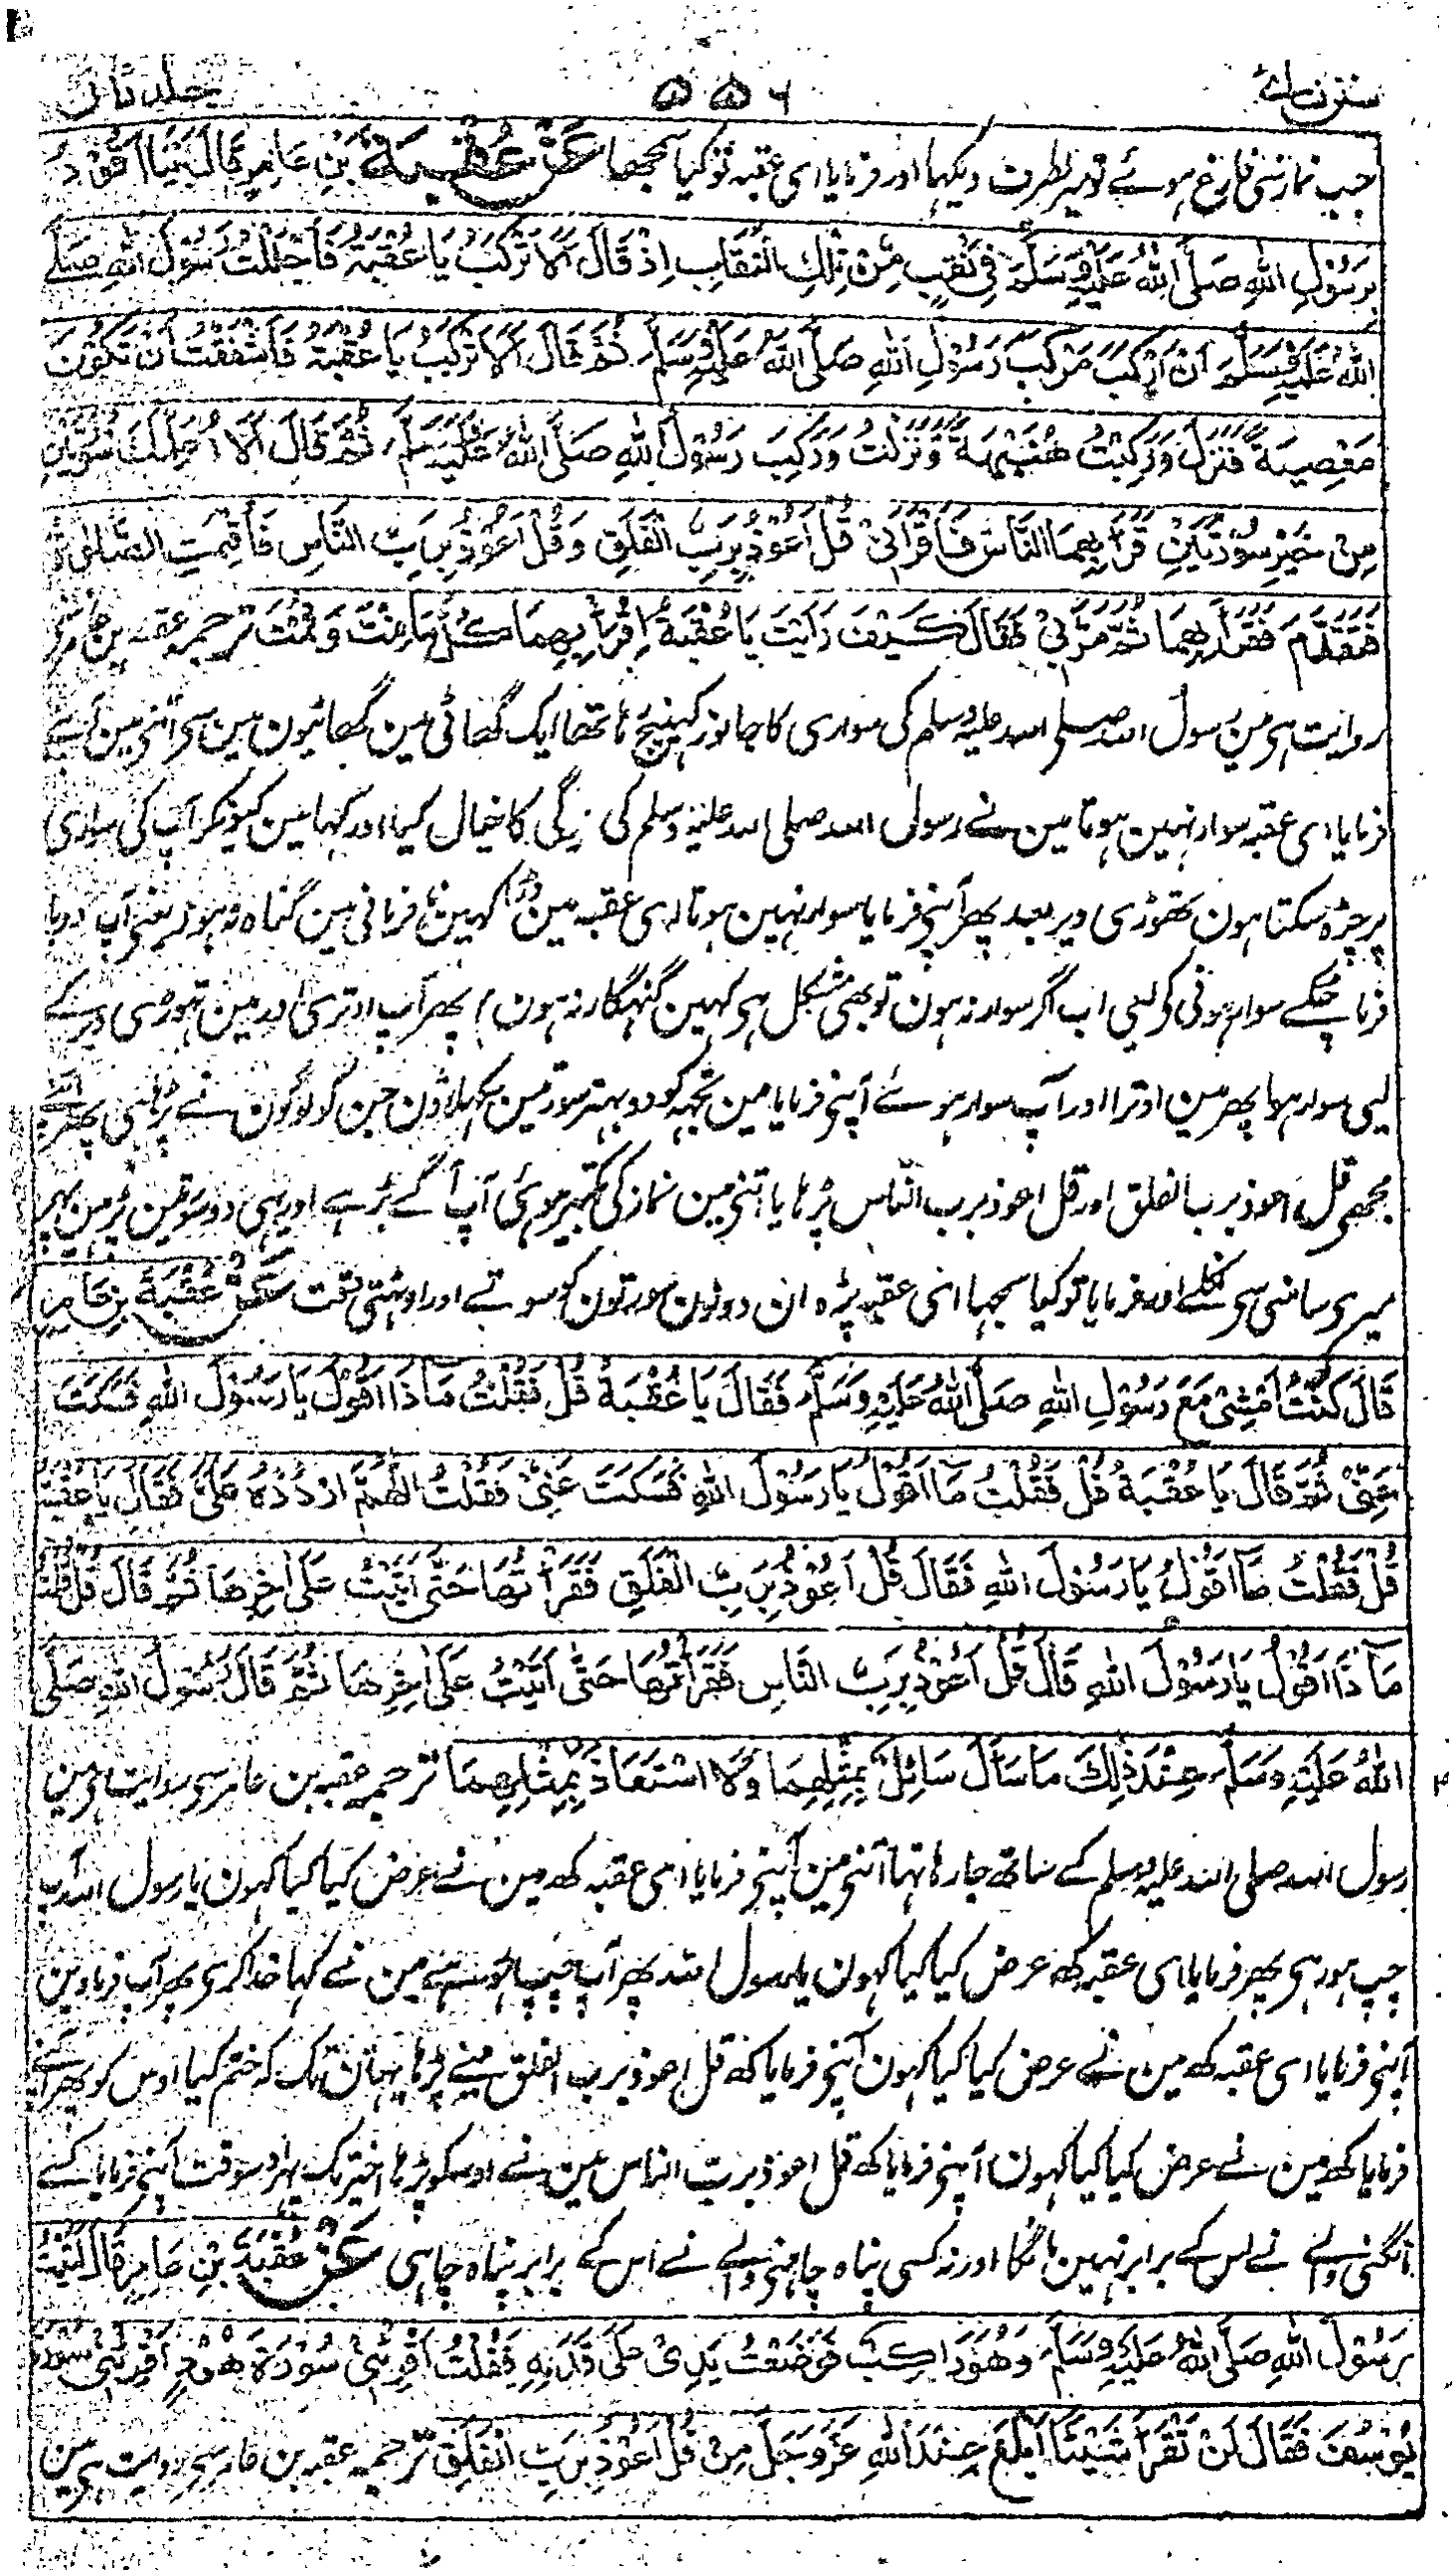 سنن نسائے ۵۵۶ جلد ثانی
جب نماز سی فارغ ہوئے تو میر یطرف دیکہا اور فرمایا ای عقبہ تو کیا سمجھا عَنْ عُقْبَةَ بْنِ عَامِرٍ قَالَ بَيْنَا اَقُوْدُ
بِرَسُوْلِ اللهِ صَلَّى اللهُ عَلَيْهِ وَسَلَّمَ فِيْ نَقْبٍ مِّنْ تِلْكَ النِّقَابِ اِذْ قَالَ اَلَا تَرْكَبُ يَا عُقْبَةُ فَاَجْلَلْتُ رَسُوْلَ اللهِ صَلَّى
اللهُ عَلَيْهِ وَسَلَّمَ اَنْ اَرْكَبَ مَرْكَبَ رَسُوْلِ اللهِ صَلَّى اللهُ عَلَيْهِ وَسَلَّمَ ثُمَّ قَالَ اَلَا تَرْكَبُ يَا عُقْبَةُ فَاَشْفَقْتُ اَنْ تَكُوْنَ
مَعْصِيَةً فَنَزَلَ وَرَكِبْتُ هُنَيْهَةً وَنَزَلْتُ وَرَكِبَ رَسُوْلُ اللهِ صَلَّى اللهُ عَلَيْهِ وَسَلَّمَ ثُمَّ قَالَ اَلَا اُعَلِّمُكَ سُوْرَتَيْنِ
مِنْ خَيْرِ سُوْرَتَيْنِ قَرَاَ بِهِمَا النَّاسُ فَاَقْرَاَنِيْ قُلْ اَعُوْذُ بِرَبِّ الْفَلَقِ وَقُلْ اَعُوْذُ بِرَبِّ النَّاسِ فَاُقِيْمَتِ الصَّلٰوةُ
فَتَقَدَّمَ فَقَرَاَ بِهِمَا ثُمَّ مَرَّ بِيْ فَقَالَ كَيْفَ رَاَيْتَ يَا عُقْبَةُ اِقْرَاْ بِهِمَا كُلَّمَا نِمْتَ وَقُمْتَ ترجمہ عقبہ بن عامر سی
روایت ہی مین رسول اللہ صلی اللہ علیہ وسلم کی سواری کا جانور کہینچ رہا تھا ایک گھاٹی مین گھاٹیون مین سی اتنی مین آپ نے
فرمایا ای عقبہ سوار نہین ہوتا مین نے رسول اللہ صلی اللہ علیہ وسلم کی بزرگی کا خیال کیا اور کہا مین کیونکر آپ کی سواری
پر چڑہ سکتا ہون تھوڑی دیر بعد پھر آپنی فرمایا سوار نہین ہوتا ای عقبہ مین ڈرا کہین نافرمانی مین گناہ نہ ہو یعنی آپ دوبا
فرما چکے سوار ہونی کو لیی اب اگر سوار نہ ہون تو بھی مشکل ہی کہین گنہگار نہ ہون پھر آپ اوتری اور مین تہوڑی دیر کے
لیی سوار ہوا پھر مین اوترا اور آپ سوار ہوئے آپنی فرمایا مین تجہہ کو دو بہتر سورتین سکہلاؤن جن کو لوگون نے پڑہی پھر آپ نے
مجھی قل اعوذ برب الفلق اور قل اعوذ برب الناس پڑہایا اتنی مین نماز کی تکبیر ہوئی آپ آگے بڑہے اور یہی دو سورتین پڑہین پہر
میری سامنی سی نکلے اور فرمایا تو کیا سمجہا ای عقبہ پڑہ ان دونون سورتون کو سوتے اور اوٹہتی وقت عَنْ عُقْبَةَ بْنِ عَامِرٍ
قَالَ كُنْتُ اَمْشِيْ مَعَ رَسُوْلِ اللهِ صَلَّى اللهُ عَلَيْهِ وَسَلَّمَ فَقَالَ يَا عُقْبَةُ قُلْ فَقُلْتُ مَاذَا اَقُوْلُ يَا رَسُوْلَ اللهِ فَسَكَتَ
عَنِّيْ ثُمَّ قَالَ يَا عُقْبَةُ قُلْ فَقُلْتُ مَا اَقُوْلُ يَا رَسُوْلَ اللهِ فَسَكَتَ عَنِّيْ فَقُلْتُ اللّٰهُمَّ ارْدُدْهُ عَلَيَّ فَقَالَ يَا عُقْبَةُ
قُلْ فَقُلْتُ مَا اَقُوْلُ يَا رَسُوْلَ اللهِ فَقَالَ قُلْ اَعُوْذُ بِرَبِّ الْفَلَقِ فَقَرَاْتُهَا حَتّٰى اَتَيْتُ عَلٰى اٰخِرِهَا ثُمَّ قَالَ قُلْ قُلْتُ
مَاذَا اَقُوْلُ يَا رَسُوْلَ اللهِ قَالَ قُلْ اَعُوْذُ بِرَبِّ النَّاسِ فَقَرَاْتُهَا حَتّٰى اَتَيْتُ عَلٰى اٰخِرِهَا ثُمَّ قَالَ رَسُوْلُ اللهِ صَلَّى
اللهُ عَلَيْهِ وَسَلَّمَ عِنْدَ ذٰلِكَ مَا سَاَلَ سَائِلٌ بِمِثْلِهِمَا وَلَا اسْتَعَاذَ بِمِثْلِهِمَا ترجمہ عقبہ بن عامر سی روایت ہی مین
رسول اللہ صلی اللہ علیہ وسلم کے ساتھ جارہا تہا اتنی مین آپنی فرمایا ای عقبہ کہہ مین نے عرض کیا کیا کہون یا رسول اللہ آپ
چپ ہو رہی پھر فرمایا ای عقبہ کہہ عرض کیا کیا کہون یا رسول اللہ پھر آپ چپ ہو رہے مین نے کہا خدا کری پھر آپ فرماوین
آپنی فرمایا ای عقبہ کہہ مین نے عرض کیا کیا کہون آپنی فرمایا کہہ قل اعوذ برب الفلق مینے پڑہا یہان تک کہ ختم کیا اوس کو پھر آپنے
فرمایا کہہ مین نے عرض کیا کیا کہون آپنی فرمایا کہہ قل اعوذ برب الناس مین نے اوسکو پڑہا اخیر تک پہر اوسوقت آپنی فرمایا کسے
مانگنی والے نے اس کے برابر نہین مانگا اور نہ کسی پناہ چاہنی والے نے اس کے برابر پناہ چاہی عَنْ عُقْبَةَ بْنِ عَامِرٍ قَالَ اَتَيْتُ
رَسُوْلَ اللهِ صَلَّى اللهُ عَلَيْهِ وَسَلَّمَ وَهُوَ رَاكِبٌ فَوَضَعْتُ يَدِيْ عَلٰى قَدَمِهِ فَقُلْتُ اَقْرِئْنِيْ سُوْرَةَ هُوْدٍ اَقْرِئْنِيْ سُوْرَةَ
يُوْسُفَ فَقَالَ لَنْ تَقْرَاَ شَيْئًا اَبْلَغَ عِنْدَ اللهِ عَزَّ وَجَلَّ مِنْ قُلْ اَعُوْذُ بِرَبِّ الْفَلَقِ ترجمہ عقبہ بن عامر سی روایت ہی مین